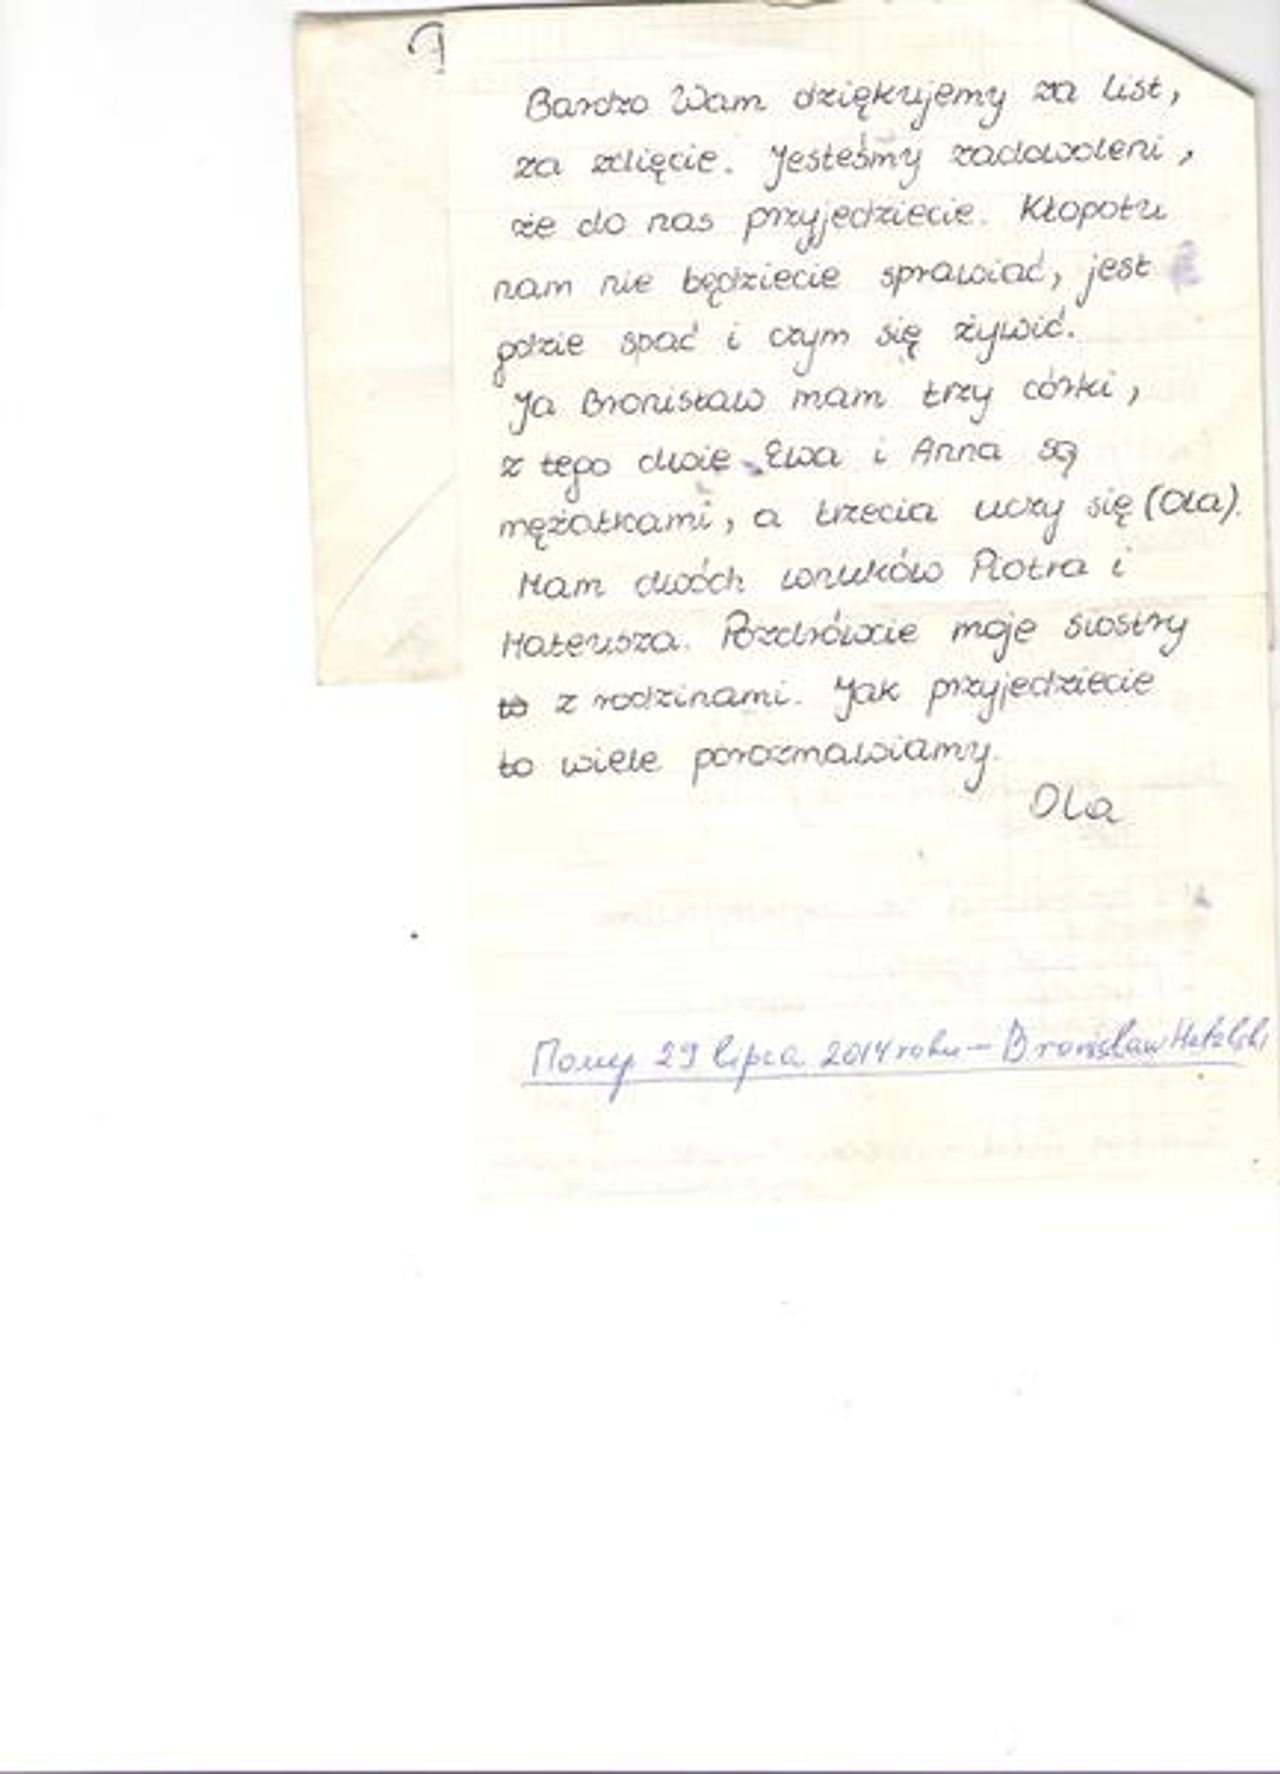 Bardzo Wam dziękujemy za list,
za zdięcie. Jesteśmy zadowoleni,
że do nas przyjedziecie. Kłopotu
nam nie będziecie sprawiać, jest
gdzie spać i czym się żywić.
Ja Bronisław mam trzy córki,
z tego dwie Ewa i Anna są
mężatkami, a trzecia uczy się (Ola).
Mam dwóch wnuków Piotra i
Mateusza. Pozdrówcie moje siostry
to z rodzinami. Jak przyjedziecie
to wiele porozmawiamy.
Ola
29 lipca 2014 roku - Bronisław